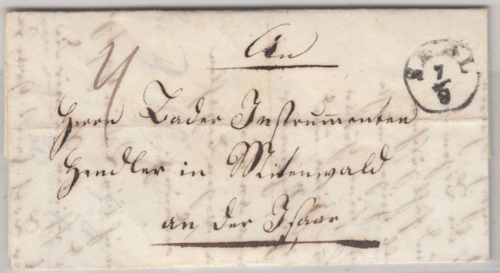 An
Herrn Bader Instrummenten
Hendler in Mitenwald
an der Isaar
7/9